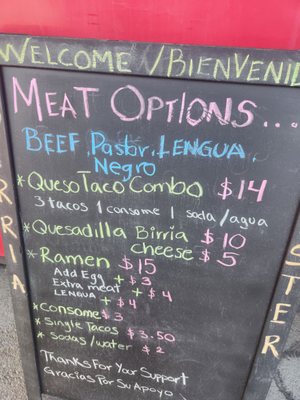 WELCOME / BIENVENID
MEAT OPTIONS...
BEEF Pastor. LENGUA.
Negro
* Queso Taco Combo $14
3 tacos | consome | soda/agua
* Quesadilla Birria $10
cheese $5
* Ramen $15
Add Egg + $3
Extra meat + $4
LENGUA + $4
* Consome $3
* Single Tacos $3.50
* Sodas/water $2
Thanks For Your Support
Gracias Por Su Apoyo
RRIA
STER